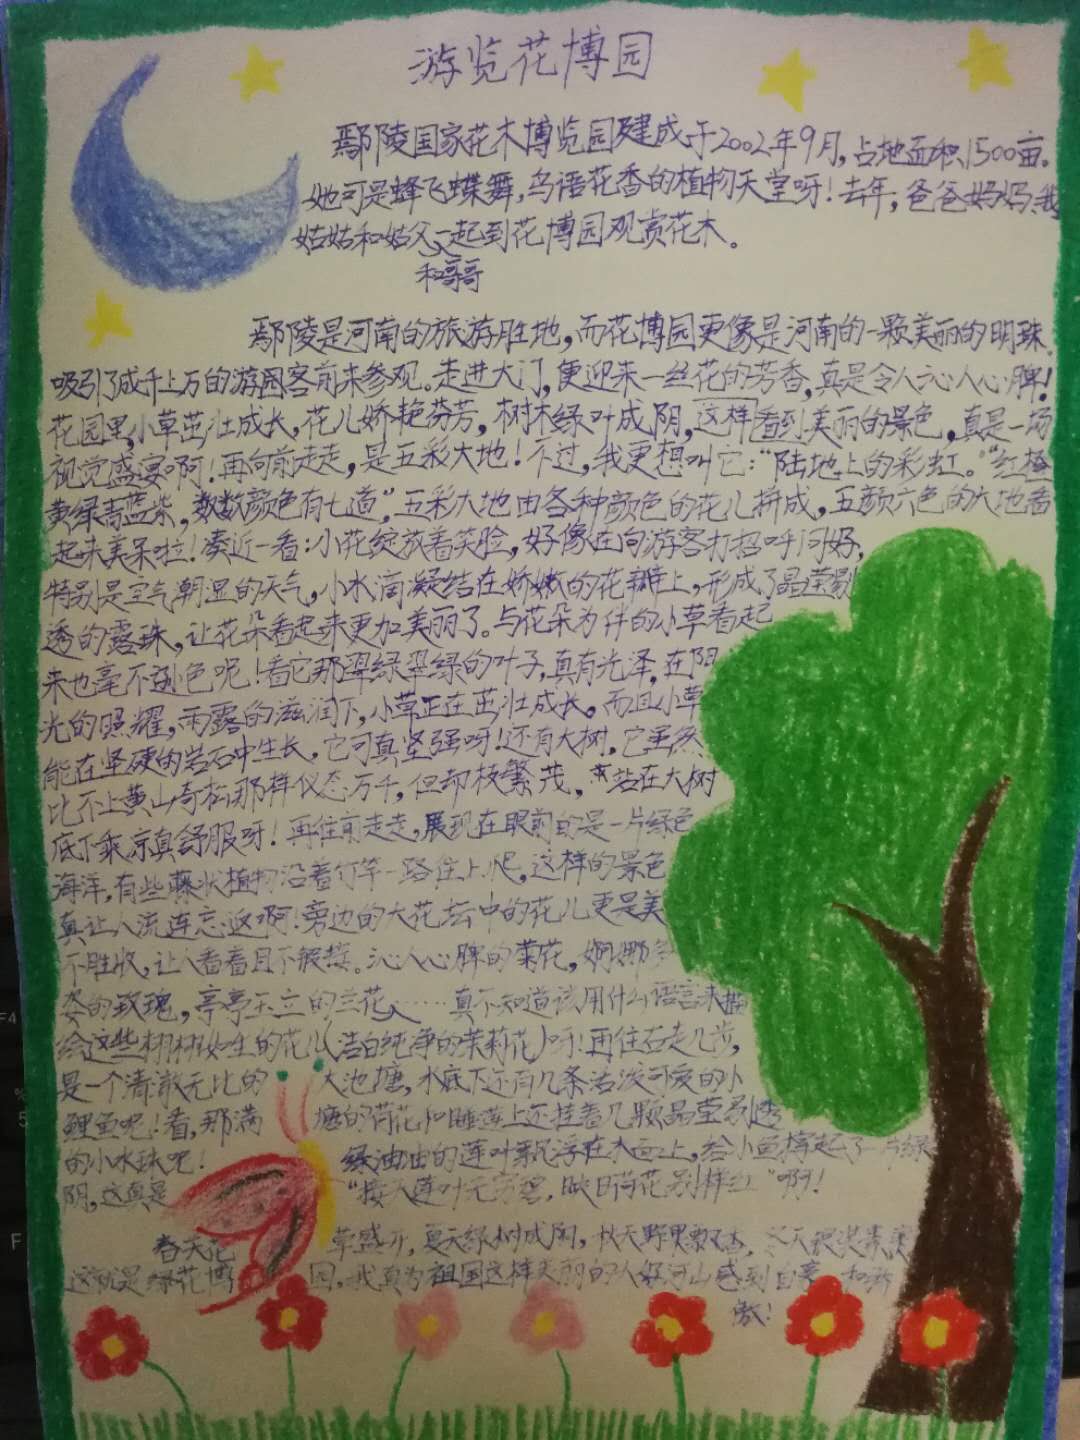 游览花博园
鄢陵国家花木博览园建成于2002年9月,占地面积1500亩。
她可是蜂飞蝶舞,鸟语花香的植物天堂呀!去年,爸爸妈妈、我
姑姑和姑父一起到花博园观赏花木。
和哥哥
鄢陵是河南的旅游胜地,而花博园更像是河南的一颗美丽的明珠
吸引了成千上万的游园客前来参观。走进大门,便迎来一丝花的芳香,真是令人沁人心脾!
花园里,小草茁壮成长,花儿娇艳芬芳,树木绿叶成阴,这样看到美丽的景色,真是一场
视觉盛宴啊!再向前走走,是五彩大地!不过,我更想叫它:“陆地上的彩虹。”“红橙
黄绿青蓝紫,数数颜色有七道”,五彩大地由各种颜色的花儿拼成,五颜六色的大地看
起来美呆啦!凑近一看:小花绽放着笑脸,好像在向游客打招呼问好,
特别是空气潮湿的天气,小水滴凝结在娇嫩的花瓣上,形成了晶莹剔
透的露珠,让花朵看起来更加美丽了。与花朵为伴的小草看起
来也毫不逊色呢!看它那翠绿翠绿的叶子,真有光泽,在阳
光的照耀,雨露的滋润下,小草正在茁壮成长。而且小草
能在坚硬的岩石中生长,它可真坚强呀!还有大树,它虽然
比不上黄山奇松那样仪态万千,但却枝繁茂,站在大树
底下乘凉真舒服呀!再往前走走,展现在眼前的是一片绿色
海洋,有些藤状植物沿着竹竿一路往上爬,这样的景色
真让人流连忘返啊!旁边的大花坛中的花儿更是美
不胜收,让人看看目不暇接。沁人心脾的菊花,婀娜多
姿的玫瑰,亭亭玉立的兰花、……真不知道该用什么语言来描
绘这些栩栩如生的花儿(洁白纯净的茉莉花)呀!再往右走几步,
是一个清澈无比的大池塘,水底下还有几条活泼可爱的小
鲤鱼呢!看,那满塘的荷花和睡莲上还挂着几颗晶莹剔透
的小水珠呢!绿油油的莲叶飘浮在水面上,给小鱼撑起了一片绿
阴,这真是“接天莲叶无穷碧,映日荷花别样红”啊!
春天花草盛开,夏天绿树成阴,秋天野果飘香,冬天银装素裹
这就是绿花博园。我真为祖国这样美丽的大好河山感到自豪和骄
傲!